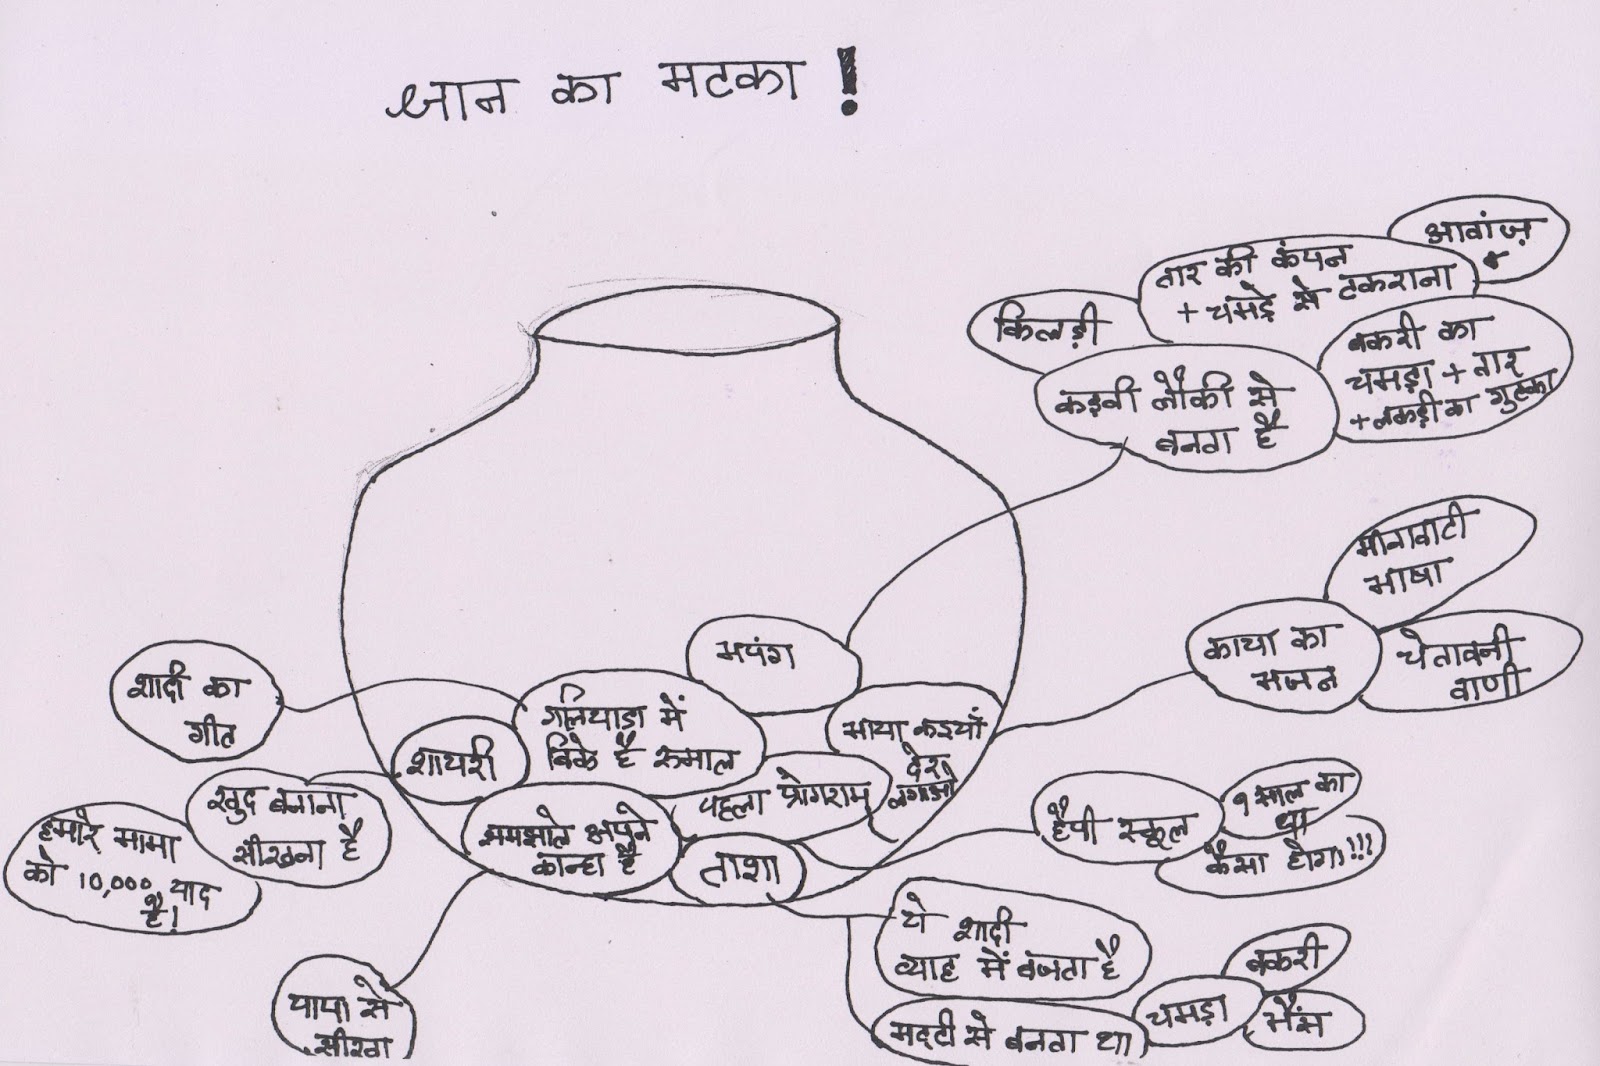 ज्ञान का मटका !
आवांज़
तार की कंपन
+ चमड़े से टकराना
किलड़ी
बकरी का
चमड़ा + तार
+ लकड़ी का गुटका
कड़वी लौकी से
बनता है
भाषा
काया का
भजन
चेतावनी
वाणी
भपंग
शादी का
गीत
गलियाड़ा में
बिके है रुमाल
शायरी
माया कइयाँ
देर
लगाओ
पहला प्रोगराम
खुद बनाना
सीखना है
हमारे मामा
को 10,000 याद
है!
समझोले अपने
कान्हा है
ताशा
हैपी स्कूल
9 साल का
था
कैसा होगा!!!
ये शादी
व्याह में बजता है
बकरी
चमड़ा
भैंस
मट्टी से बनता था
पापा से
सीखा